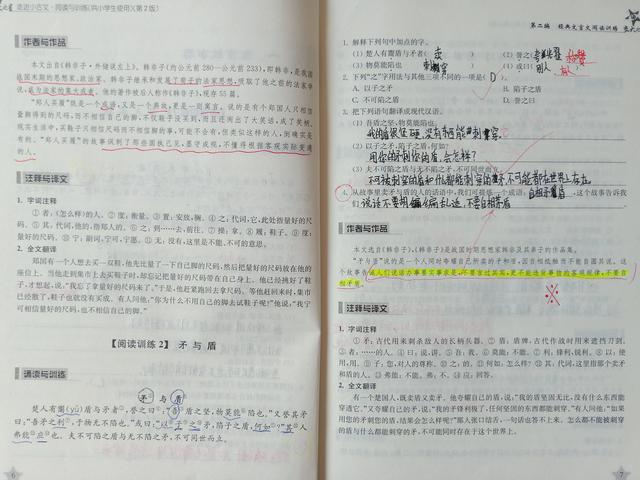 走进小古文·阅读与训练(供小学生使用)(第2版)
作者与作品
本文出自《韩非子·外储说左上》。韩非子(约公元前280—公元前233),即韩非,是我国
战国末期的思想家、政治家。韩非子继承和发展了荀子的法家思想,吸取了他之前的法家学
说,成为法家的集大成者。他的著作被后人称作《韩非子》,现存55篇。
“郑人买履”既是一个成语,又是一个典故,更是一则寓言。说的是有个郑国人只相信
量脚得到的尺码,而不相信自己的脚,不仅鞋子没买到,而且还闹出了大笑话,成了笑柄。
现实生活中,买鞋子只相信尺码而不相信脚的事,可能不会有,但类似这样的人,倒确实是
有的。“郑人买履”的故事讽刺了那些固执己见、墨守成规,不懂得根据客观实际变通
的人。
注释与译文
1. 字词注释
①者:(怎么样)的人。②度:衡量。③置:安放,搁。④之:代词,它,此处指量好的
尺码。⑤其:代词,他的,指郑人的。⑥之:到……去,前往。⑦操:拿。⑧履:鞋子。⑨度:
量好的尺码。⑩宁:副词,宁可,宁愿。⑪无:没有,这里是不能、不可的意思。
2. 全文翻译
郑国有一个人想去买一双鞋,他先比量了一下自己脚的尺码,然后把量好的尺码放在他的
座位上。当他走到集市上去买鞋子时,却忘记把量好的尺码带在自己身上。他已经挑好了鞋
子,才想起,说:“我忘了拿量好的尺码来了。”于是,他赶紧跑回去拿尺码。等他赶回来时,集市
已经散了,鞋子也就没有买成。有人问他:“你为什么不用自己的脚去试鞋子呢?”他说:“我宁
可相信量好的尺码,也不相信自己的脚。”
【阅读训练2】 矛与盾
诵读与训练
矛 与 盾
楚人有鬻(yù)盾与矛者,誉之曰:“吾盾之坚,物莫能陷也。”又誉其矛
曰:“吾矛之利,于物无不陷也。”或曰:“以子之矛,陷子之盾,何如?”其人
弗能应也。夫不可陷之盾与无不陷之矛,不可同世而立。
6
第二编 经典文言文阅读训练
1. 解释下列句中加点的字。
(1) 楚人有鬻盾与矛者 卖
(2) 誉之曰
(3) 物莫能陷也 刺穿
(4) 或曰 别人
有人
2. 下列“之”字用法与其他三项不同的一项是( D )
A. 以子之矛 B. 陷子之盾
C. 不可陷之盾 D. 誉之曰
3. 把下列语句翻译成现代汉语。
(1) 吾盾之坚,物莫能陷也。
我的盾很坚硬,没有东西能刺穿。
(2) 以子之矛,陷子之盾,何如?
用你的矛刺你的盾,会怎样?
(3) 夫不可陷之盾与无不陷之矛,不可同世而立。
不可被刺穿的盾和什么都能刺穿的矛,不可能都在世界上存在
4. 从故事里卖矛与盾的人的话语中,我们可提炼一个成语:自相矛盾,这个故事告诉我
们 说话不要,不要自相矛盾
作者与作品
本文选自《韩非子》,《韩非子》是战国时期思想家韩非及其弟子的作品集。
“矛与盾”说的是一个人同时夸耀自己所卖的矛和盾,因自相抵触而不能自圆其说。这
个故事告诫人们说话办事要实事求是,不要言过其实,更不能违背事物的客观规律,不要自
相矛盾。
注释与译文
1. 字词注释
①矛:古代用来刺杀敌人的长柄兵器。②盾:盾牌,古代作战时用来遮挡刀剑。
③者:……的人。④曰:说,讲。⑤吾:我。⑥莫能:不能。⑦利:锋利,锐利。⑧以:使
用,用。⑨子:您,对人的尊称。⑩之:的。⑪何如:怎么样?⑫其:代词,这里指那个卖矛
和盾的人。⑬弗能:不能。弗,不。⑭应:回答。
2. 全文翻译
有一个楚国人,既卖盾又卖矛。他夸耀自己的盾,说:“我的盾坚固无比,没有什么东西能
穿透它。”又夸耀自己的矛,说:“我的矛锋利极了,任何坚固的东西都能刺穿。”有人问他:“如果
用您的矛刺您的盾,结果会怎么样呢?”那人张口结舌,一句话也答不上来。怎么都不能被刺穿
的盾与什么都能刺穿的矛,不可能同时存在于这个世界上。
7